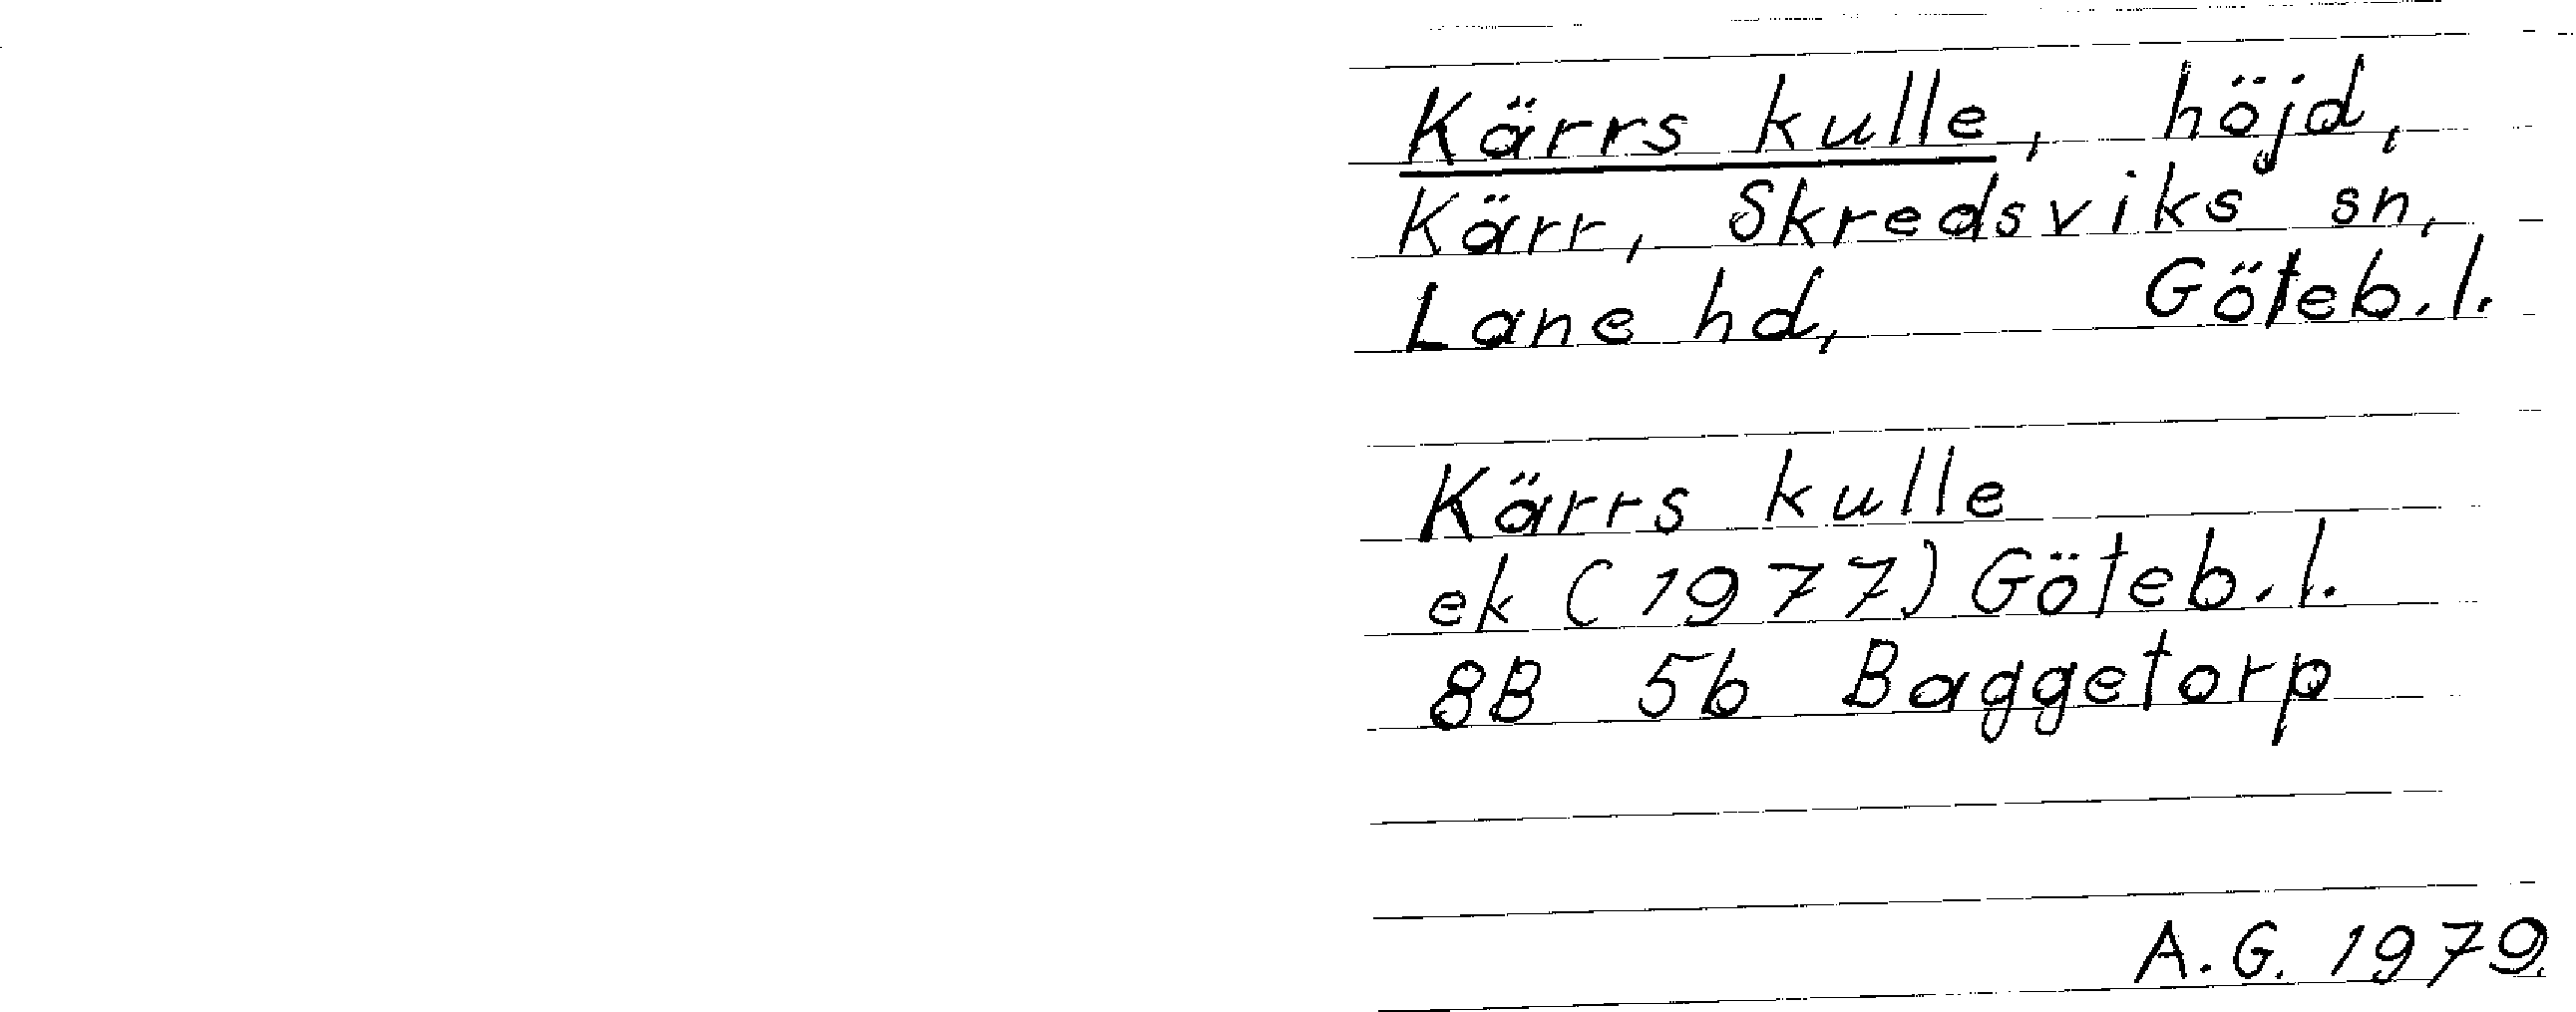 Kärrs kulle, höjd,
Kärr, Skredsviks sn,
Lane hd, Göteb.l.
Kärrs kulle
ek (1977) Göteb.l.
8B 5b Baggetorp
A.G. 1979.